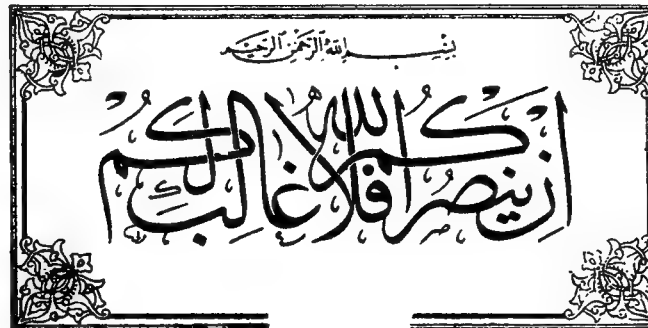 بسم الله الرحمن الرحيم
ان ينصركم الله فلا غالب لكم